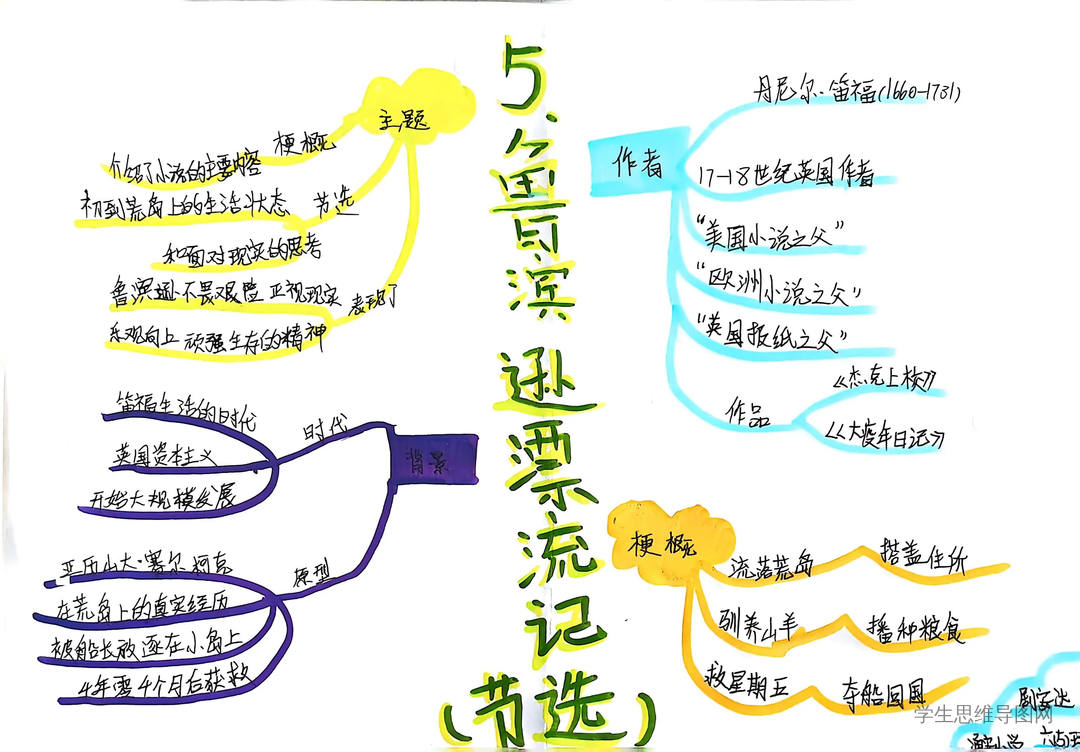 5.鲁滨逊漂流记
(节选)
主题
梗概
介绍了小说的主要内容
节选
初到荒岛上的生活状态
和面对现实的思考
表现了
鲁滨逊不畏艰险 正视现实
乐观向上 顽强生存的精神
背景
时代
笛福生活的时代
英国资本主义
开始大规模发展
原型
亚历山大·塞尔柯克
在荒岛上的真实经历
被船长放逐在小岛上
4年零4个月后获救
作者
丹尼尔·笛福(1660-1731)
17-18世纪英国作者
“美国小说之父”
“欧洲小说之父”
“英国报纸之父”
作品
《杰克上校》
《大疫年日记》
梗概
流落荒岛
搭盖住所
驯养山羊
播种粮食
救星期五
夺船回国
学生思维导图网